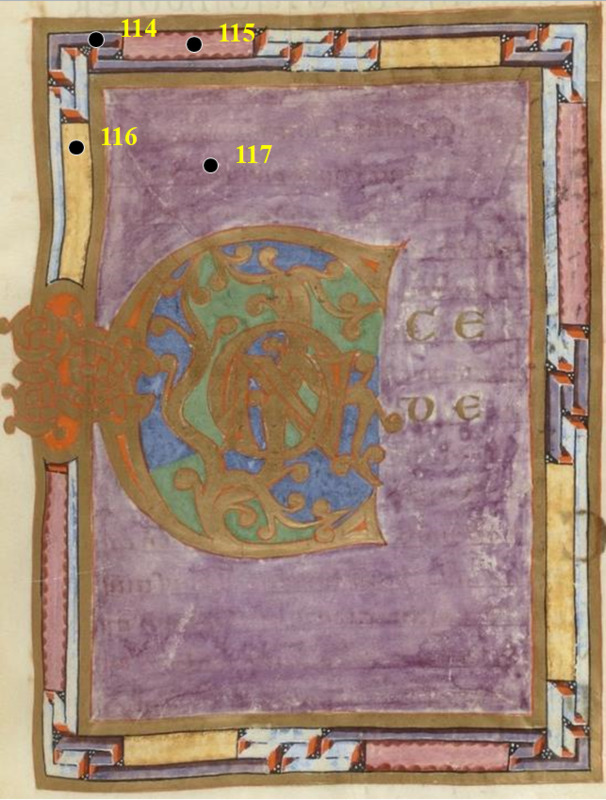 114 115
116
117
CON
CE
DE